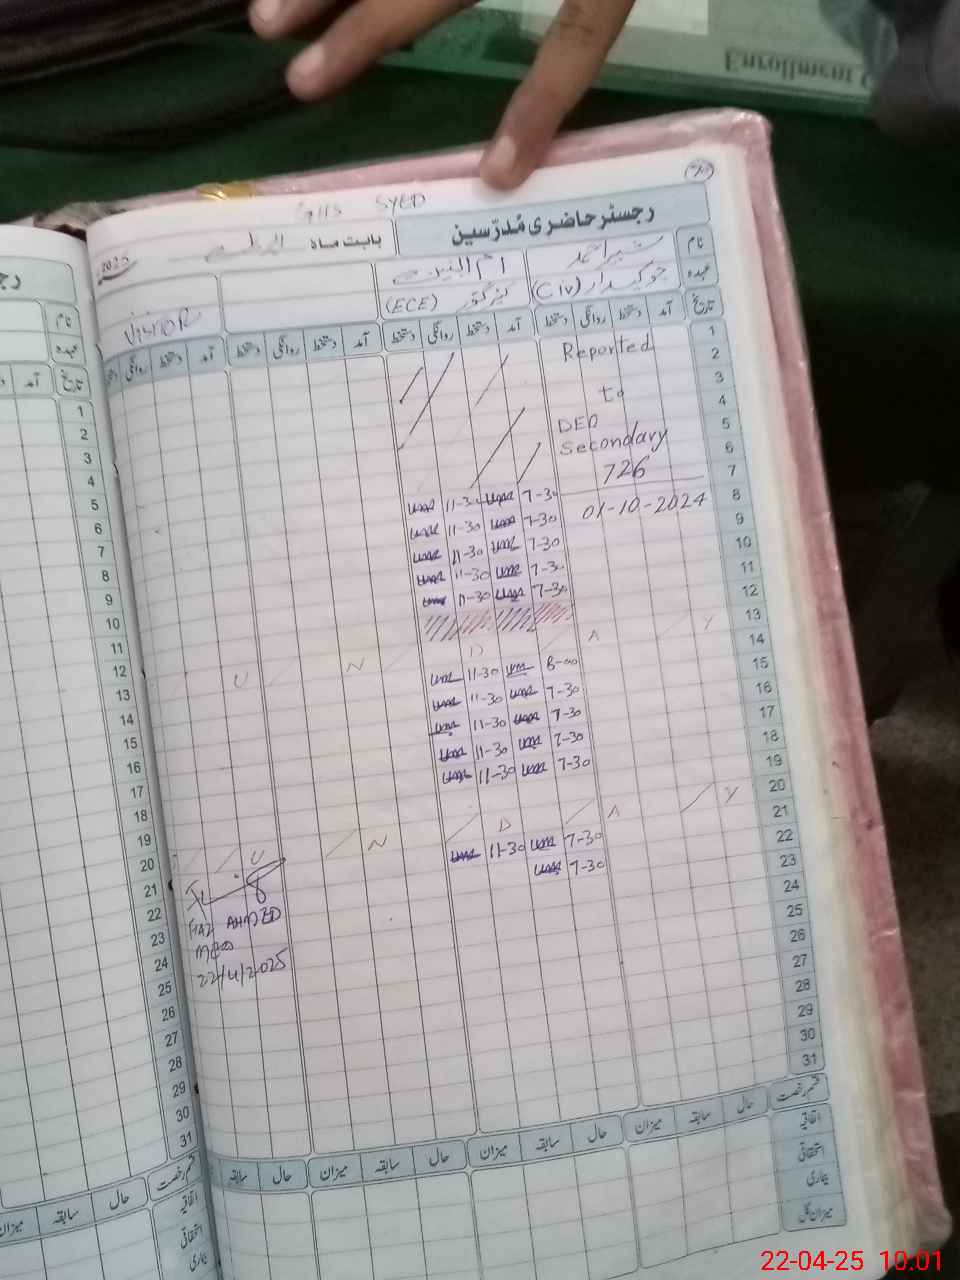 Enrollment
GHS SYED
رجسٹر حاضری مُدرّسین
بابت ماہ
2025
نام
شبیر احمد
ام البنین
عہدہ
چوکیدار (C IV)
(ECE)
VISITOR
تاریخ
آمد دستخط روانگی دستخط آمد دستخط روانگی دستخط آمد دستخط روانگی دستخط آمد دستخط روانگی
1
2 Reported
3
4 to
5 DEO
6 Secondary
7 726
8 7-30 11-30 01-10-2024
9 7-30 11-30
10 7-30 11-30
11 7-30 11-30
12 7-30 11-30
13
14 Y A D N U
15 8-00 11-30
16 7-30 11-30
17 7-30 11-30
18 7-30 11-30
19 7-30 11-30
20
21 Y A D N U
22 7-30 11-30
23 7-30
24
25
26
27
28
29
30
31
AHMED
22/4/2025
قسم رخصت
حال سابقہ میزان حال سابقہ میزان حال سابقہ میزان حال سابقہ
اتفاقیہ
استحقاقی
بیماری
میزان کل
نام
عہدہ
تاریخ
آمد
1
2
3
4
5
6
7
8
9
10
11
12
13
14
15
16
17
18
19
20
21
22
23
24
25
26
27
28
29
30
31
قسم رخصت
حال سابقہ میزان
اتفاقیہ
استحقاقی
بیماری
22-04-25 10.01